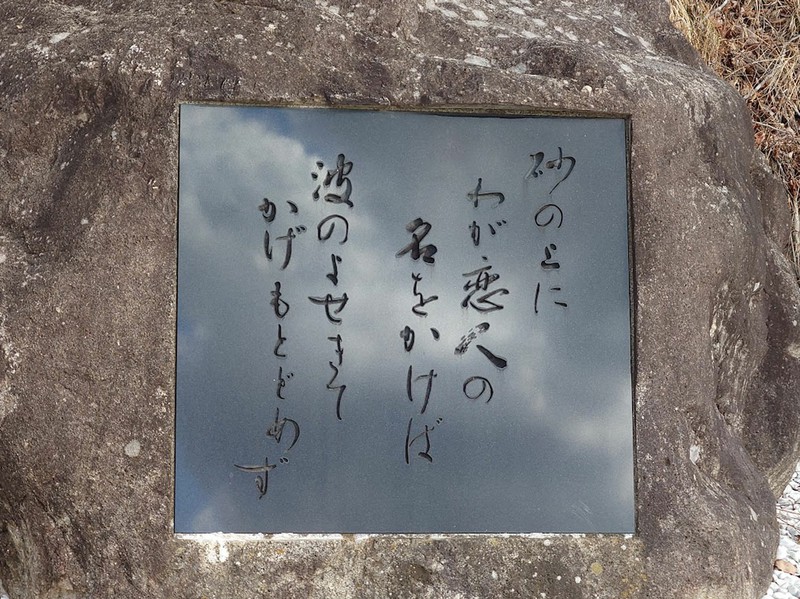 砂の上に
わが恋人の
名をかけば
波のよせきて
かげもとどめず